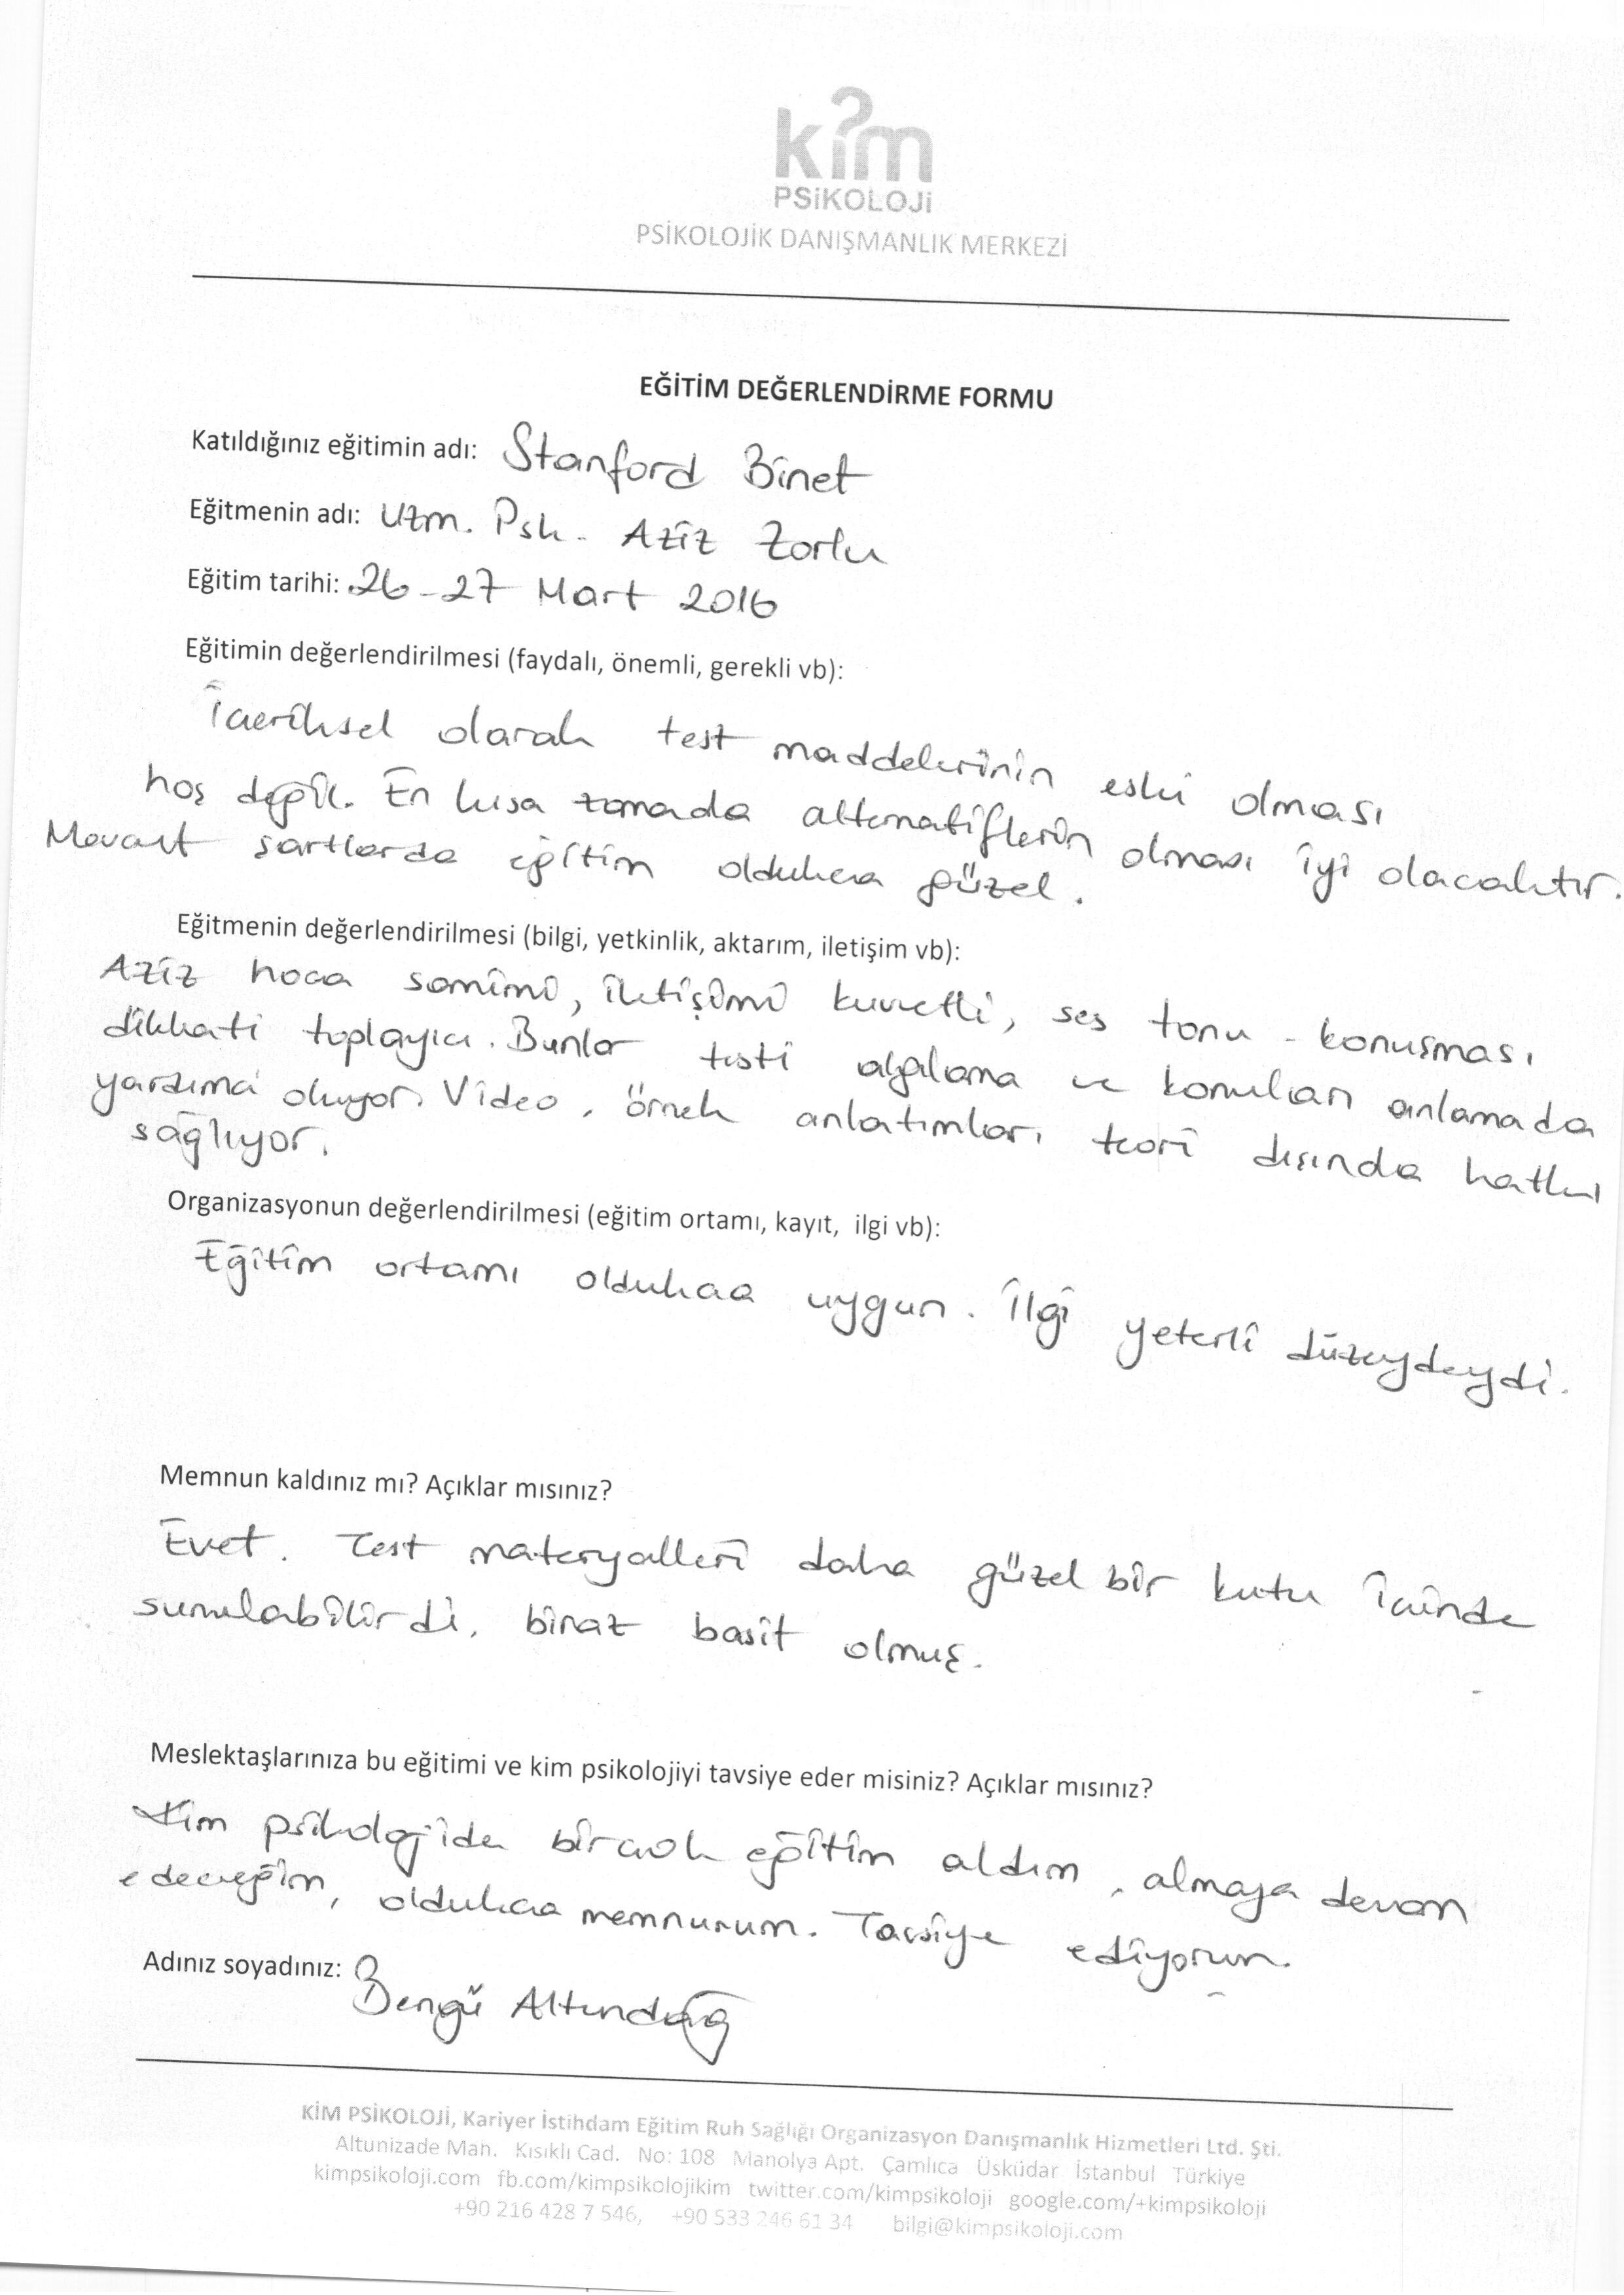 kim
PSiKOLOJi
PSİKOLOJİK DANIŞMANLIK MERKEZİ
EĞİTİM DEĞERLENDİRME FORMU
Katıldığınız eğitimin adı: Stanford Binet
Eğitmenin adı: Uzm. Psk. Aziz Zorlu
Eğitim tarihi: 26-27 Mart 2016
Eğitimin değerlendirilmesi (faydalı, önemli, gerekli vb):
İçeriksel olarak test maddelerinin eski olması
hoş değil. En kısa zamada alternatiflerin olması iyi olacaktır.
Mevcut şartlarda eğitim oldukca güzel.
Eğitmenin değerlendirilmesi (bilgi, yetkinlik, aktarım, iletişim vb):
Aziz hoca samimi, iletişimi kuvvetli, ses tonu - konuşması
dikkati toplayıcı. Bunlar testi algılama ve konuları anlamada
yardımcı oluyor. Video, örnek anlatımları teori dışında katkı
sağlıyor.
Organizasyonun değerlendirilmesi (eğitim ortamı, kayıt, ilgi vb):
Eğitim ortamı oldukca uygun. İlgi yeterli düzeydeydi.
Memnun kaldınız mı? Açıklar mısınız?
Evet. Test materyalleri daha güzel bir kutu icinde
sunulabilirdi, biraz basit olmuş.
Meslektaşlarınıza bu eğitimi ve kim psikolojiyi tavsiye eder misiniz? Açıklar mısınız?
Kim psikolojiden bircok eğitim aldım, almaya devam
edeceğim, oldukca memnunum. Tavsiye ediyorum.
Adınız soyadınız: Bengü Altındağ
KİM PSİKOLOJİ, Kariyer İstihdam Eğitim Ruh Sağlığı Organizasyon Danışmanlık Hizmetleri Ltd. Şti.
Altunizade Mah. Kısıklı Cad. No: 108 Manolya Apt. Çamlıca Üsküdar İstanbul Türkiye
kimpsikoloji.com fb.com/kimpsikolojikim twitter.com/kimpsikoloji google.com/+kimpsikoloji
+90 216 428 7 546, +90 533 246 61 34 bilgi@kimpsikoloji.com